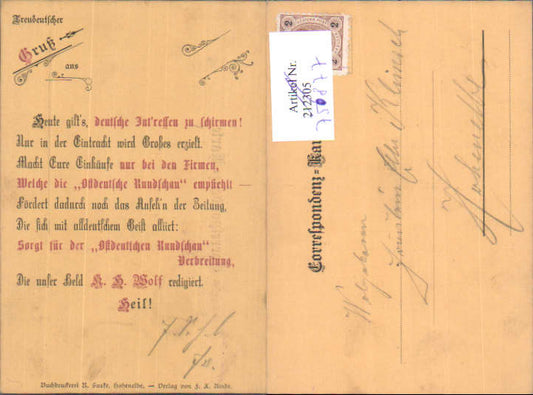 Treudeutscher
Gruß
aus
Heute gilt's, deutsche Int'ressen zu schirmen!
Nur in der Eintracht wird Großes erzielt.
Macht Eure Einkäufe nur bei den Firmen,
Welche die „Ostdeutsche Rundschau" empfiehlt
Fördert dadurch noch das Anseh'n der Zeitung,
Die sich mit alldeutschem Geist alliirt:
Sorgt für der „Ostdeutschen Rundschau"
Verbreitung,
Die unser Held K. H. Wolf redigiert.
Heil!
Buchdruckerei Hohenelbe. — Verlag von F. X.
2
2
Artikel Nr.
212305
Correspondenz-Kar
Wohlgeboren
Hohenelbe